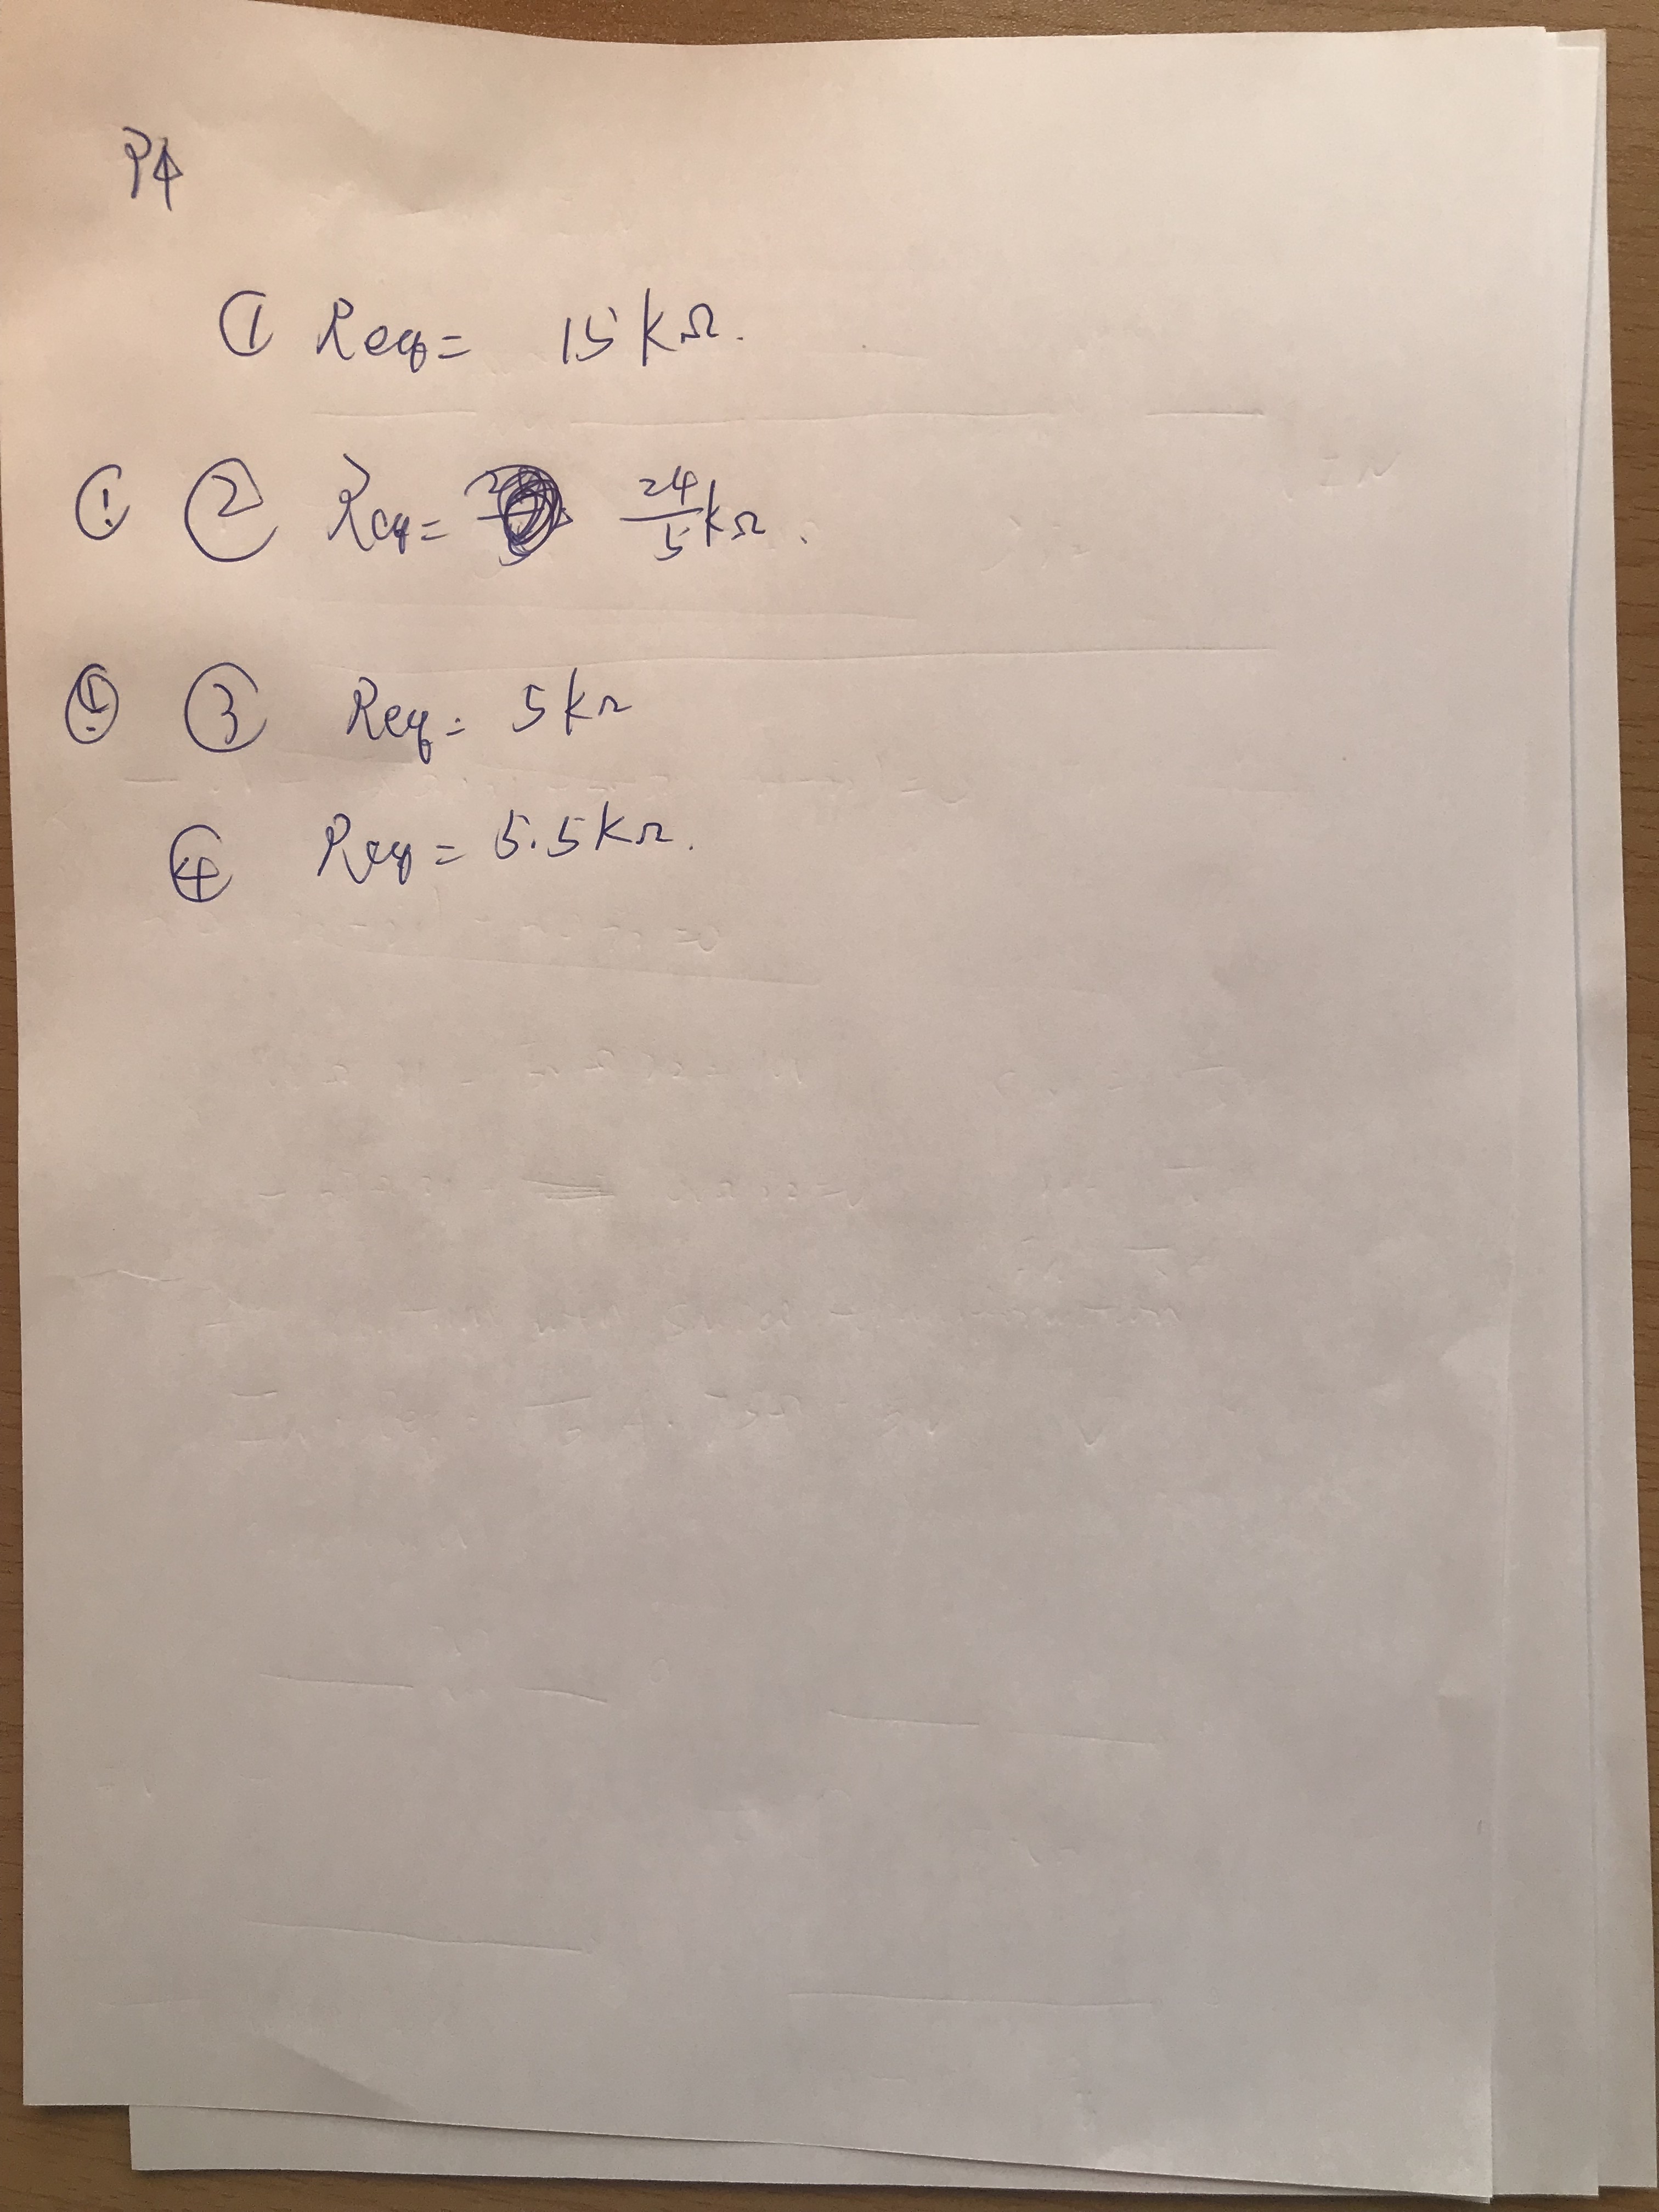 P4
① Req = 15kΩ.
! ② Req = 24/5 kΩ.
! ③ Req = 5kΩ
④ Req = 5.5kΩ.